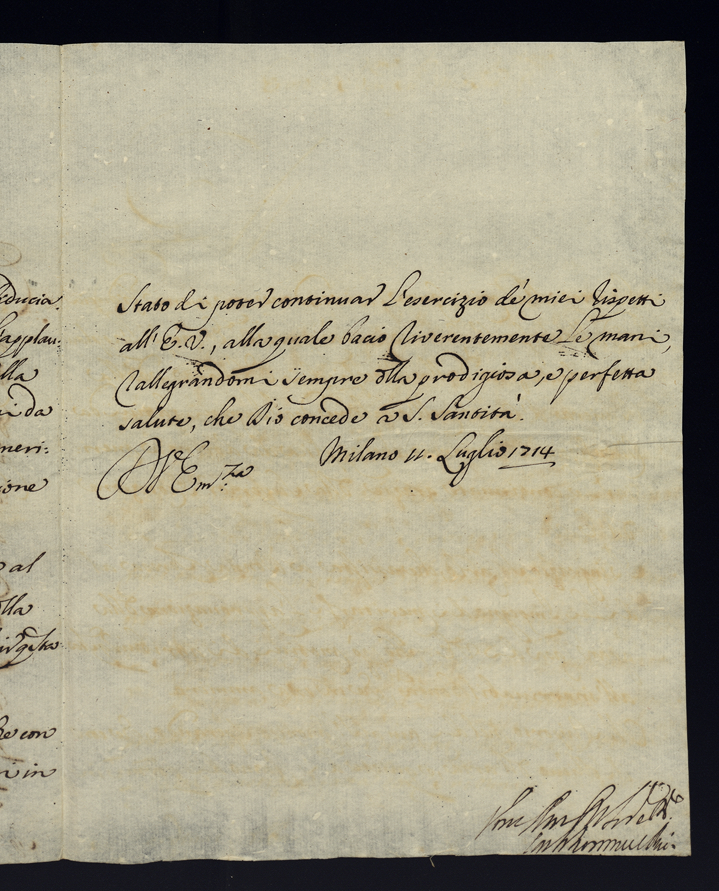 iducia
applau:
lla
i da
meri:
ione
o al
olla
he con
i in
Stato di poter continuar l'esercizio de' miei rispetti
all' E.V., alla quale bacio riverentemente le mani,
rallegrandomi sempre della prodigiosa, e perfetta
salute, che Dio concede a S. Santità.
Milano 11. Luglio 1714
Em.za